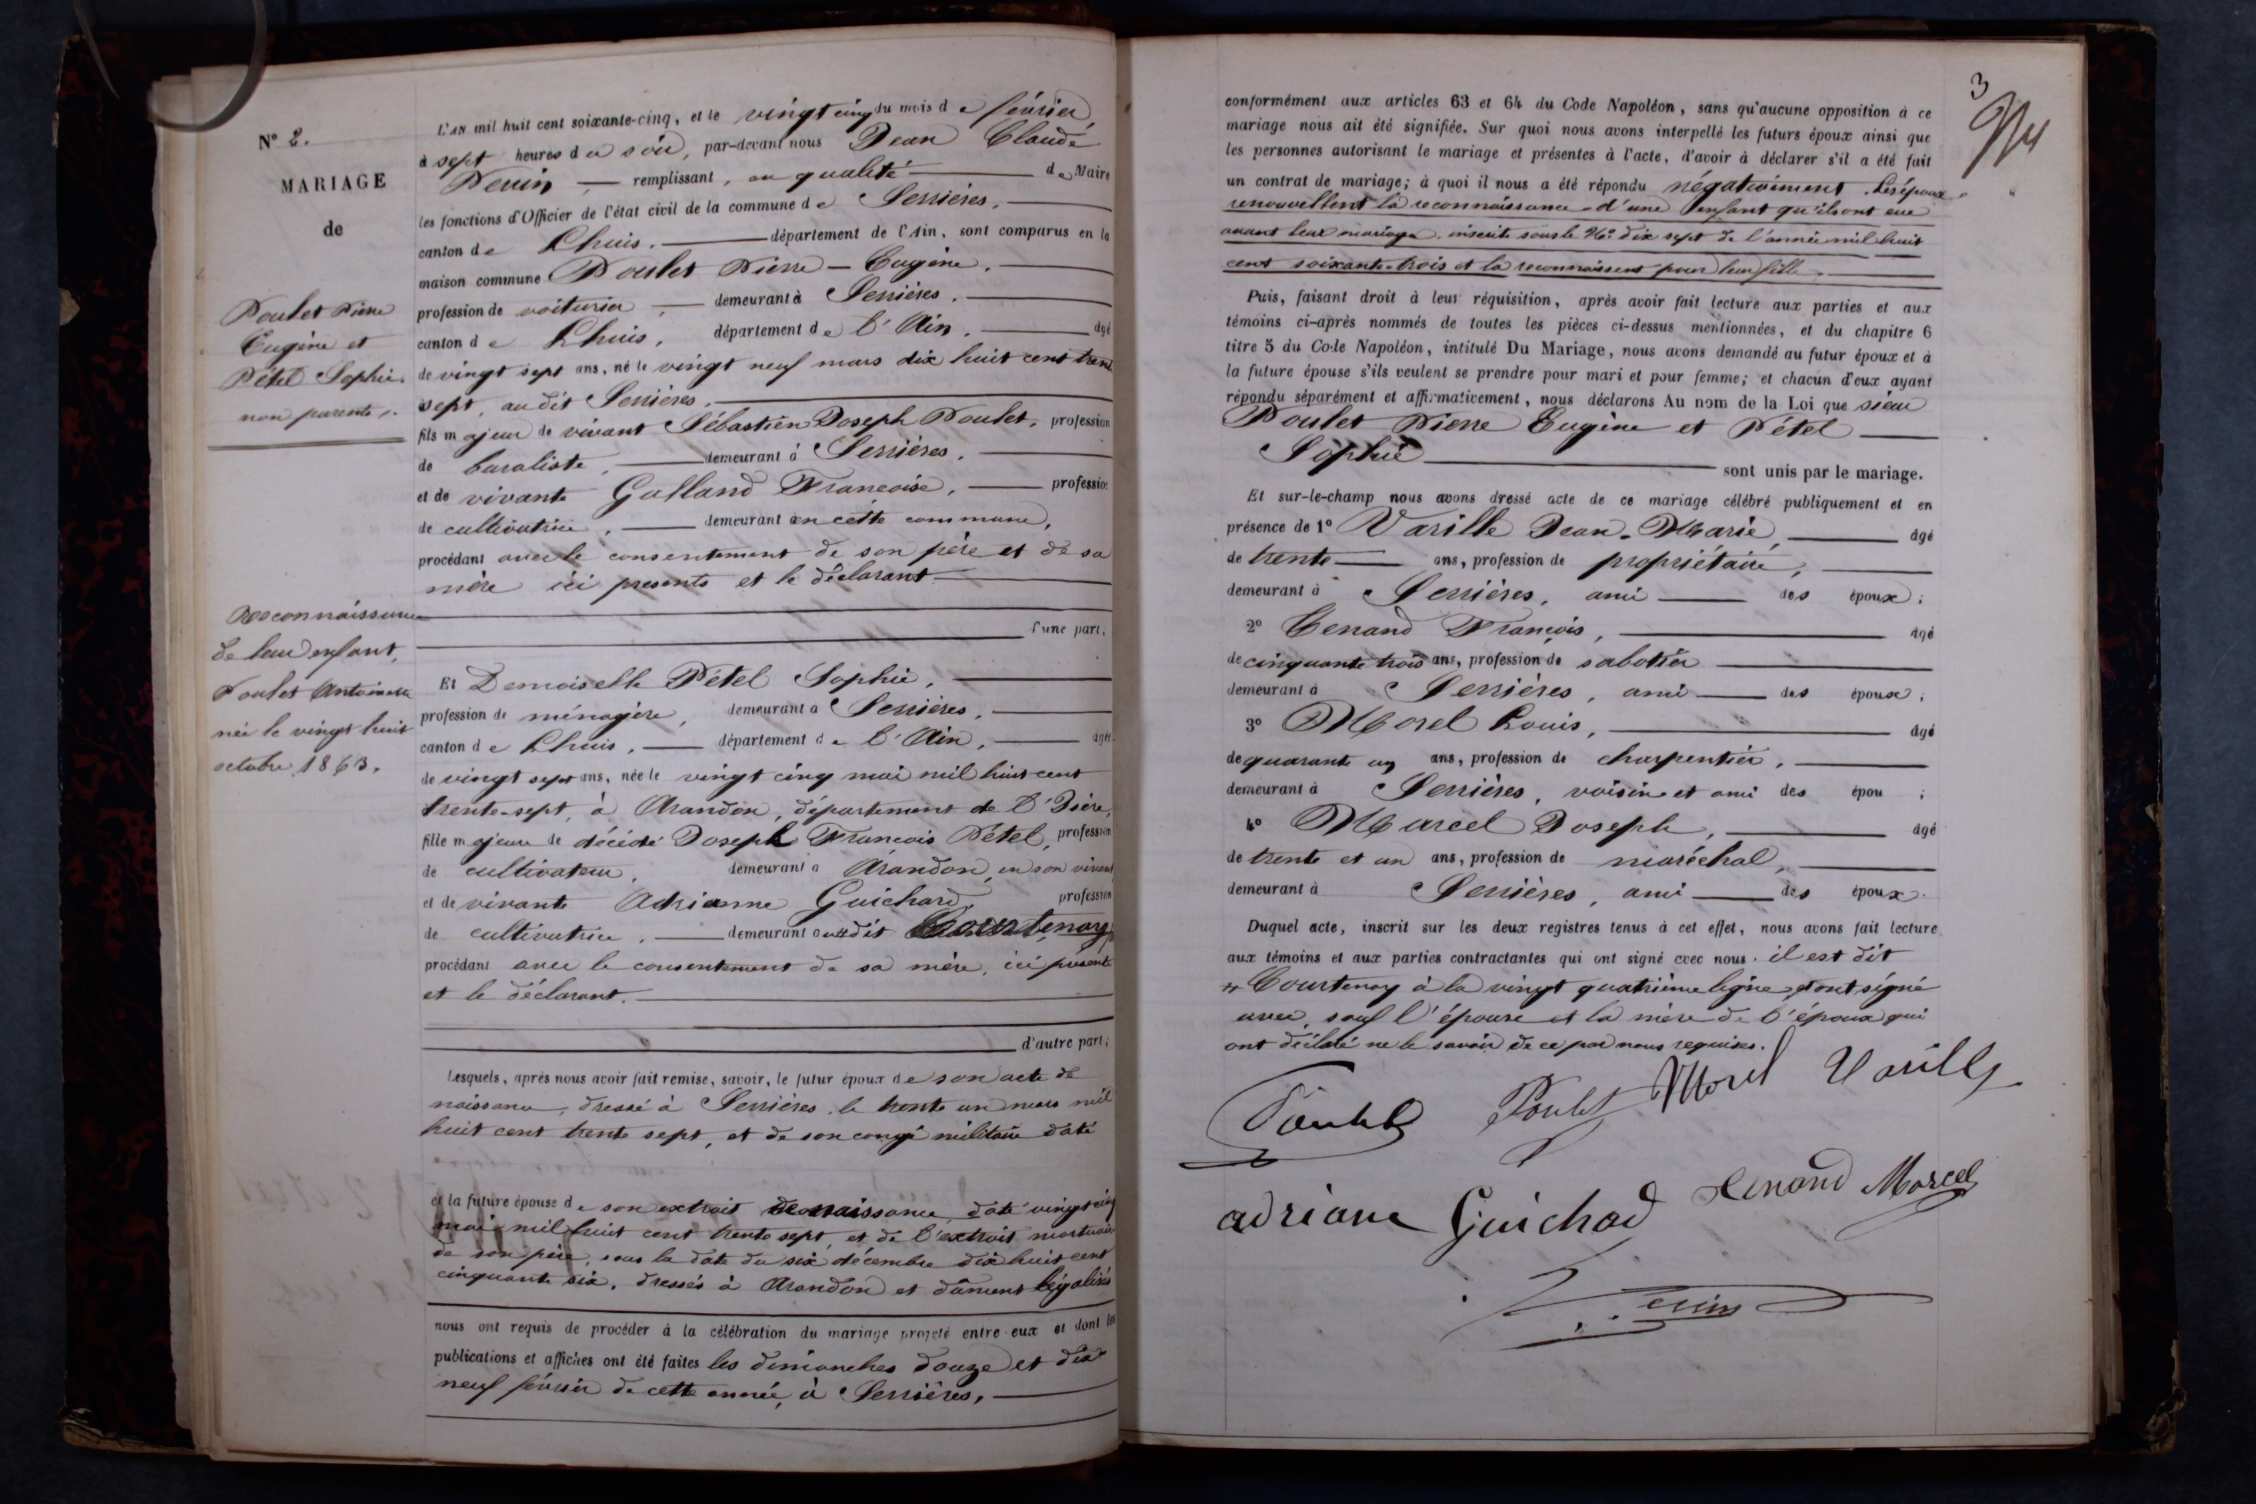 N° 2.
MARIAGE
de
Poulet Pierre
Eugène et
Pétel Sophie.
non parents.
Reconnaissance
de leur enfant,
Poulet Antoinette
née le vingt huit
octobre 1863.
L'AN mil huit cent soixante-cinq, et le vingt cinq du mois de février,
à sept heures du soir, par-devant nous Jean Claude
Perrin remplissant, en qualité de Maire
les fonctions d'Officier de l'état civil de la commune de Serrières,
canton de Lhuis. département de l'Ain, sont comparus en la
maison commune Poulet Pierre-Eugène,
profession de voiturier, demeurant à Serrières,
canton de Lhuis, département de l'Ain, âgé
de vingt sept ans, né le vingt neuf mars dix huit cent trente
sept, au dit Serrières,
fils majeur de vivant Sébastien Joseph Poulet, profession
de buraliste, demeurant à Serrières,
et de vivante Galland Françoise, profession
de cultivatrice, demeurant en cette commune,
procédant avec le consentement de son père et de sa
mère ici présents et le déclarant
d'une part,
Et Demoiselle Pétel Sophie,
profession de ménagère, demeurant à Serrières,
canton de Lhuis, département de l'Ain, âgée
de vingt sept ans, née le vingt cinq mai mil huit cent
trente-sept, à Arandon, département de l'Isère,
fille majeure de décédé Joseph François Pétel, profession
de cultivateur, demeurant à Arandon, en son vivant
et de vivante Adrianne Guichard, profession
de cultivatrice, demeurant audit Courtenay
procédant avec le consentement de sa mère, ici présente
et le déclarant.
d'autre part;
Lesquels, après nous avoir fait remise, savoir, le futur époux de son acte de
naissance, dressé à Serrières, le trente un mars mil
huit cent trente sept, et de son congé militaire daté
et la future épouse de son extrait de naissance, daté vingt cinq
mai mil huit cent trente sept, et de l'extrait mortuaire
de son père, sous la date du six décembre dix huit cent
cinquante six, dressés à Arandon et dûment légalisés
nous ont requis de procéder à la célébration du mariage projeté entre eux et dont les
publications et affiches ont été faites les dimanches douze et dix
neuf février de cette année, à Serrières,
3
conformément aux articles 63 et 64 du Code Napoléon, sans qu'aucune opposition à ce
mariage nous ait été signifiée. Sur quoi nous avons interpellé les futurs époux ainsi que
les personnes autorisant le mariage et présentes à l'acte, d'avoir à déclarer s'il a été fait
un contrat de mariage; à quoi il nous a été répondu négativement. Les époux
renouvellent la reconnaissance d'une enfant qu'ils ont eue
avant leur mariage, inscrite sous le N° dix sept de l'année mil huit
cent soixante-trois et la reconnaissent pour leur fille.
Puis, faisant droit à leur réquisition, après avoir fait lecture aux parties et aux
témoins ci-après nommés de toutes les pièces ci-dessus mentionnées, et du chapitre 6
titre 5 du Code Napoléon, intitulé Du Mariage, nous avons demandé au futur époux et à
la future épouse s'ils veulent se prendre pour mari et pour femme; et chacun d'eux ayant
répondu séparément et affirmativement, nous déclarons Au nom de la Loi que sieur
Poulet Pierre Eugène et Pétel
Sophie sont unis par le mariage.
Et sur-le-champ nous avons dressé acte de ce mariage célébré publiquement et en
présence de 1° Varille Jean-Marie, âgé
de trente ans, profession de propriétaire,
demeurant à Serrières, ami des époux;
2° Cenand François, âgé
de cinquante trois ans, profession de sabotier
demeurant à Serrières, ami des époux;
3° Morel Louis, âgé
de quarante un ans, profession de charpentier,
demeurant à Serrières, voisin et ami des épou;
4° Marcel Joseph, âgé
de trente et un ans, profession de maréchal,
demeurant à Serrières, ami des époux.
Duquel acte, inscrit sur les deux registres tenus à cet effet, nous avons fait lecture
aux témoins et aux parties contractantes qui ont signé avec nous. il est dit
Courtenay à la vingt quatrième ligne, et ont signé
avec, sauf l'épouse et la mère de l'époux qui
ont déclaré ne le savoir de ce par nous requises.
Poulet Poulet Morel Varille
adriane Guichad Cenand Marcel
Perrin